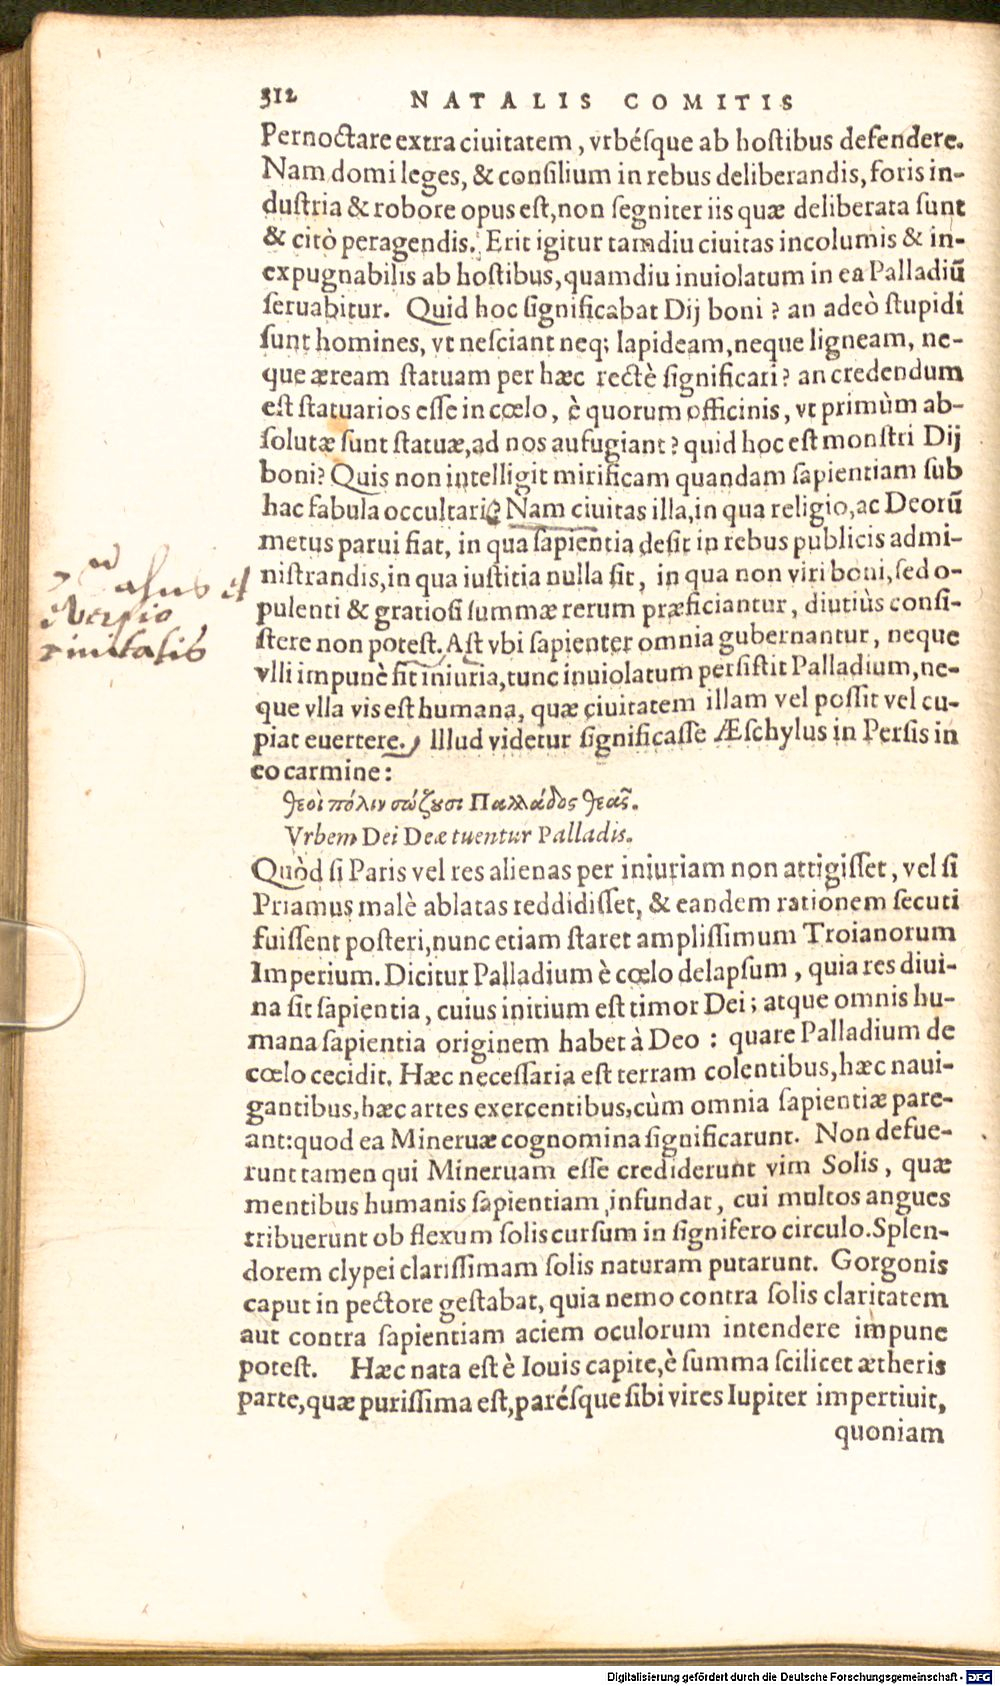 312 NATALIS COMITIS
Pernoctare extra ciuitatem, vrbésque ab hostibus defendere.
Nam domi leges, & consilium in rebus deliberandis, foris in-
dustria & robore opus est, non segniter iis quæ deliberata sunt
& citò peragendis. Erit igitur tamdiu ciuitas incolumis & in-
expugnabilis ab hostibus, quamdiu inuiolatum in ea Palladiũ
seruabitur. Quid hoc significabat Dij boni? an adeò stupidi
sunt homines, vt nesciant neq; lapideam, neque ligneam, ne-
que æream statuam per hæc rectè significari? an credendum
est statuarios esse in cœlo, è quorum officinis, vt primùm ab-
solutæ sunt statuæ, ad nos aufugiant? quid hoc est monstri Dij
boni? Quis non intelligit mirificam quandam sapientiam sub
hac fabula occultari? Nam ciuitas illa, in qua religio, ac Deorũ
metus parui fiat, in qua sapientia desit in rebus publicis admi-
nistrandis, in qua iustitia nulla sit, in qua non viri boni, sed o-
pulenti & gratiosi summæ rerum præficiantur, diutiùs consi-
stere non potest. Ast vbi sapienter omnia gubernantur, neque
vlli impunè fit iniuria, tunc inuiolatum persistit Palladium, ne-
que vlla vis est humana, quæ ciuitatem illam vel possit vel cu-
piat euertere. Illud videtur significasse Æschylus in Persis in
eo carmine:
θεοὶ πόλιν σώζουσι Παλλάδος θεᾶς.
Vrbem Dei Deæ tuentur Palladis.
Quòd si Paris vel res alienas per iniuriam non attigisset, vel si
Priamus malè ablatas reddidisset, & eandem rationem secuti
fuissent posteri, nunc etiam staret amplissimum Troianorum
Imperium. Dicitur Palladium è cœlo delapsum, quia res diui-
na sit sapientia, cuius initium est timor Dei; atque omnis hu-
mana sapientia originem habet à Deo: quare Palladium de
cœlo cecidit. Hæc necessaria est terram colentibus, hæc naui-
gantibus, hæc artes exercentibus, cùm omnia sapientiæ pare-
ant: quod ea Mineruæ cognomina significarunt. Non defue-
runt tamen qui Mineruam esse crediderunt vim Solis, quæ
mentibus humanis sapientiam infundat, cui multos angues
tribuerunt ob flexum solis cursum in signifero circulo. Splen-
dorem clypei clarissimam solis naturam putarunt. Gorgonis
caput in pectore gestabat, quia nemo contra solis claritatem
aut contra sapientiam aciem oculorum intendere impune
potest. Hæc nata est è Iouis capite, è summa scilicet ætheris
parte, quæ purissima est, parésque sibi vires Iupiter impertiuit,
quoniam
et
euersio
ciuitatis
Digitalisierung gefördert durch die Deutsche Forschungsgemeinschaft - DFG